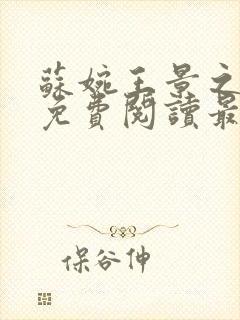 蘇婉王景之
免費閱讀最
保谷伸